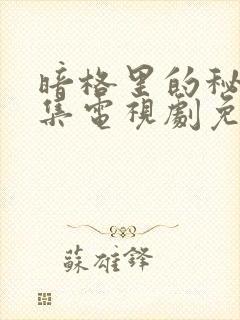 暗格里的秘
集電視劇免
蘇雄鋒